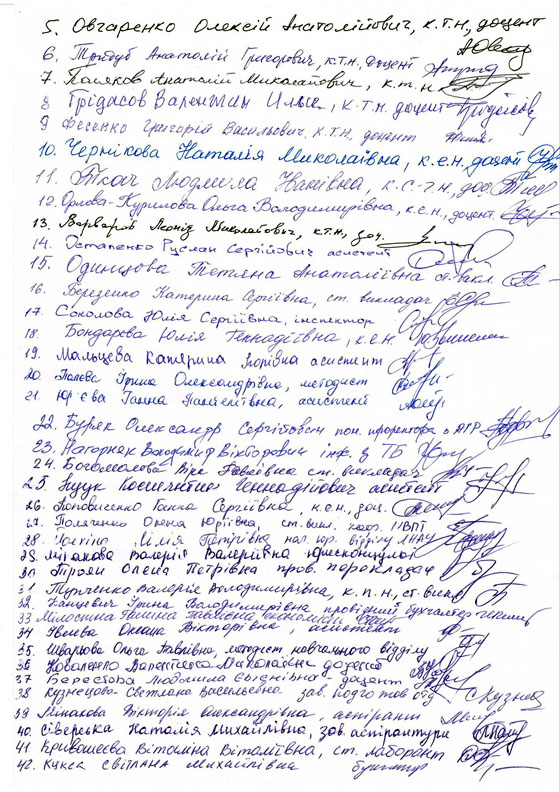 5. Овчаренко Олексій Анатолійович, к.т.н., доцент
6. Анатолій Григорович, к.т.н., доцент
7. Поляков Анатолій Миколайович, к.т.н.
8 Грідасов Валентин Ілліч, к.т.н. доцент
9 Фесенко Григорій Васильович, к.т.н, доцент
10. Чернікова Наталія Миколаївна, к.е.н, доцент
11. Ткач Людмила Іванівна, к.с-г.н, доц.
12. Орлова-Курилова Ольга Володимирівна, к.е.н, доцент.
13. Варваров Леонід Миколайович, к.т.н., доц.
14. Остапенко Руслан Сергійович асистент
15. Одинцова Тетяна Анатоліївна ст. викл.
16. Березенко Катерина Сергіївна, ст. викладач
17. Соколова Юлія Сергіївна, інспектор
18. Бондарєва Юлія Геннадіївна, к.е.н
19. Мальцева Катерина Ігорівна асистент
20. Ірина Олександрівна, методист
21. Юр'єва Ганна асистент
22. Буряк Олександр Сергійович пом. проректора з АГР
23. Нагорняк Володимир Вікторович інж. з ТБ
24. Богомолова Віра Павлівна ст. викладач
25. Костянтин Геннадійович асистент
26. Ганна Сергіївна, к.е.н, доц.
27. Олена Юріївна, ст. викл. каф.
28. Лілія Петрівна нач. юр. відділу ЛНАУ
29. Мінакова Валерія Валеріївна юрисконсульт
30 Троян Олена Петрівна пров. перекладач
31 Турченко Валерія Володимирівна, к.п.н, ст. викл
32. Ірина Володимирівна провідний бухгалтер
33 Милостна Галина Павлівна економіст
34 Оксана Вікторівна, асистент
35. Шварьова Ольга Павлівна, методист навчального відділу
36 Коваленко Валентина Миколаївна доцент
37 Берестова Людмила Євгеніївна доцент
38 Кузнецова Светлана Васильевна зав. подготов отд
39 Мінакова Вікторія Олександрівна, аспірант
40. Сіверська Наталія Михайлівна, зав. аспірантури
41. Кривошеєва Віталіна Віталіївна, ст. лаборант
42. Кукса Світлана Михайлівна бухгалтер